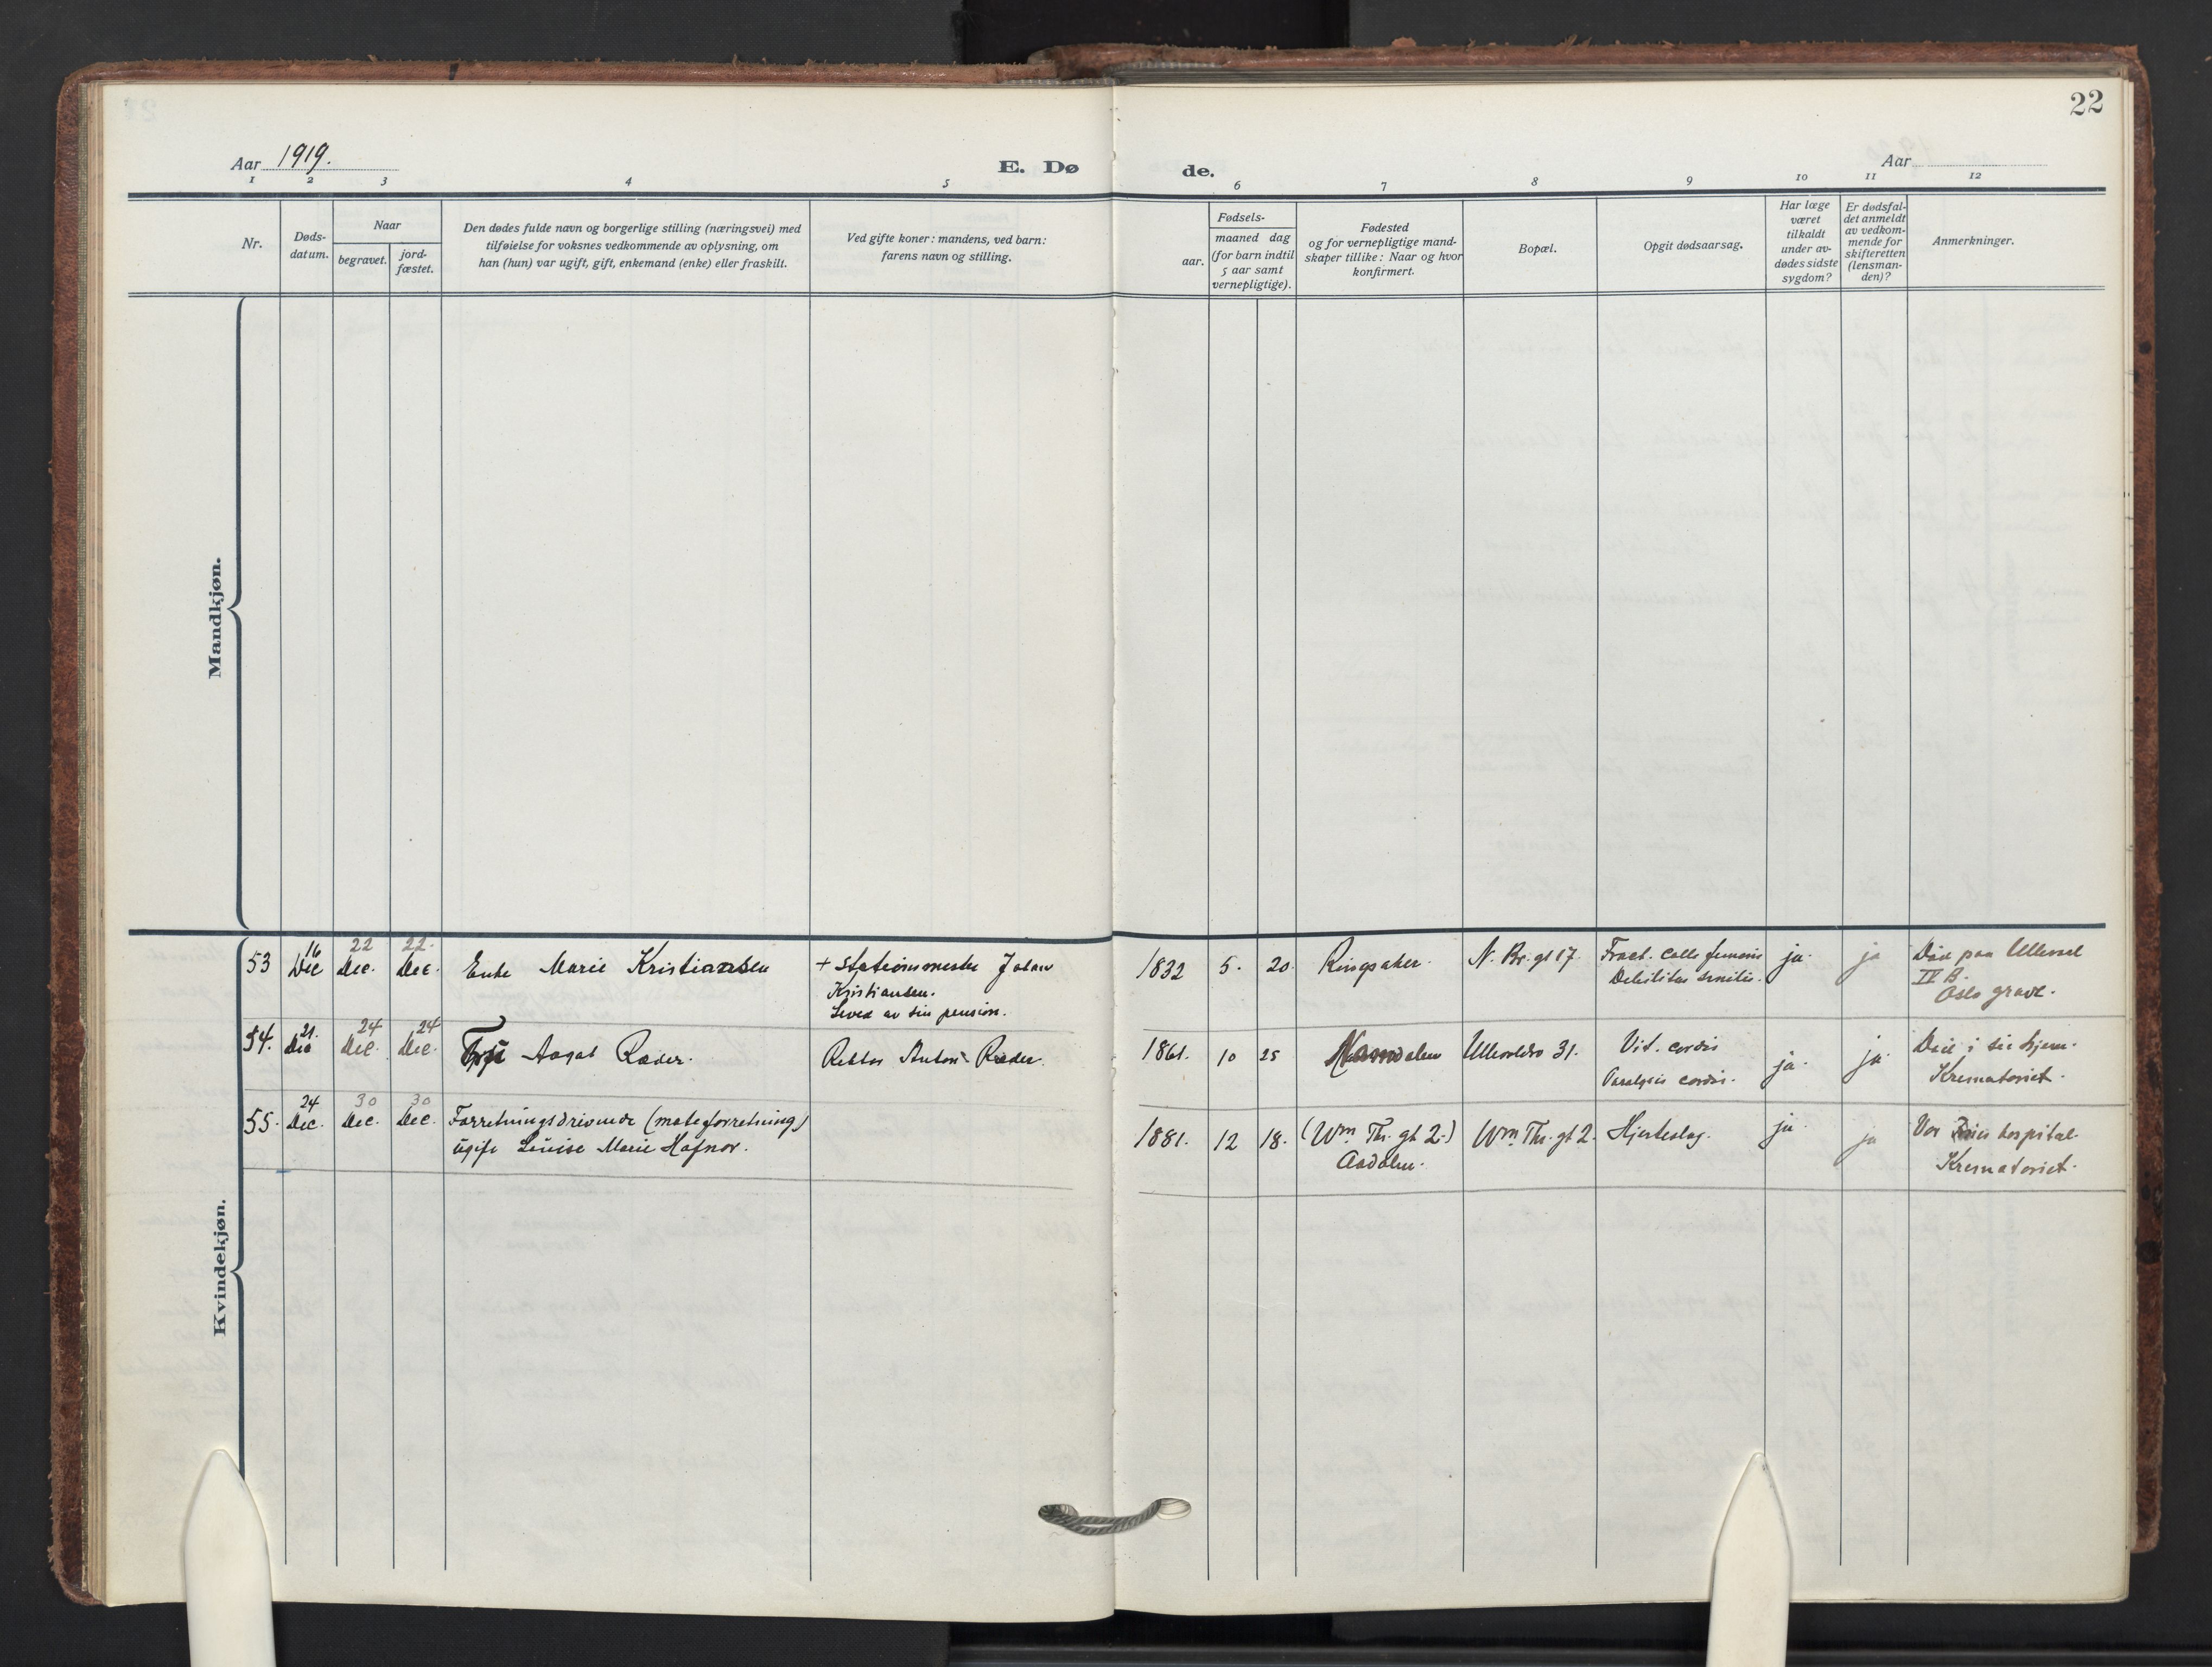 22
Aar 1919.
E. Dø de.
Aar
1 2 3 4 5 6 7 8 9 10 11 12
Nr.
Døds-
datum.
Naar
begravet.
jord-
fæstet.
Den dødes fulde navn og borgerlige stilling (næringsvei) med
tilføielse for voksnes vedkommende av oplysning, om
han (hun) var ugift, gift, enkemand (enke) eller fraskilt.
Ved gifte koner: mandens, ved barn:
farens navn og stilling.
Fødsels-
aar.
maaned dag
(for barn indtil
5 aar samt
vernepligtige).
Fødested
og for vernepligtige mand-
skaper tillike: Naar og hvor
konfirmert.
Bopæl.
Opgit dødsaarsag.
Har læge
været
tilkaldt
under av-
dødes sidste
sygdom?
Er dødsfal-
det anmeldt
av vedkom-
mende for
skifteretten
(lensman-
den)?
Anmerkninger.
Mandkjøn.
Kvindekjøn.
53 16 Dec 22 Dec. 22. Dec. Enke Marie Kristiansen
+ Stationsmester Johan
Kristiansen.
Leved av sin pension.
1832 5. 20. Ringsaker. N. Br. gt 17.
Fract. colli femoris
Debilitas senilis.
ja. ja
Død paa Ullevaal
IV B.
Oslo grave.
54. 21. Dec 24 Dec. 24 Dec. Fru Aagot Ræder.
Rektor Anton Ræder.
1861. 10 25 Namdalen Ullevoldsv 31.
Vit. cordis
Paralysis cordis.
ja. ja.
Død i sit hjem.
Krematoriet.
55. 24 Dec. 30 Dec. 30 Dec. Forretningsdrivende (moteforretning)
ugift Louise Marie Hafnor.
1881. 12 18. (Wm. Th. gt 2.)
Aadalen.
Wm. Th. gt 2. Hjerteslag. ja. ja
Vor Frues hospital.
Krematoriet.